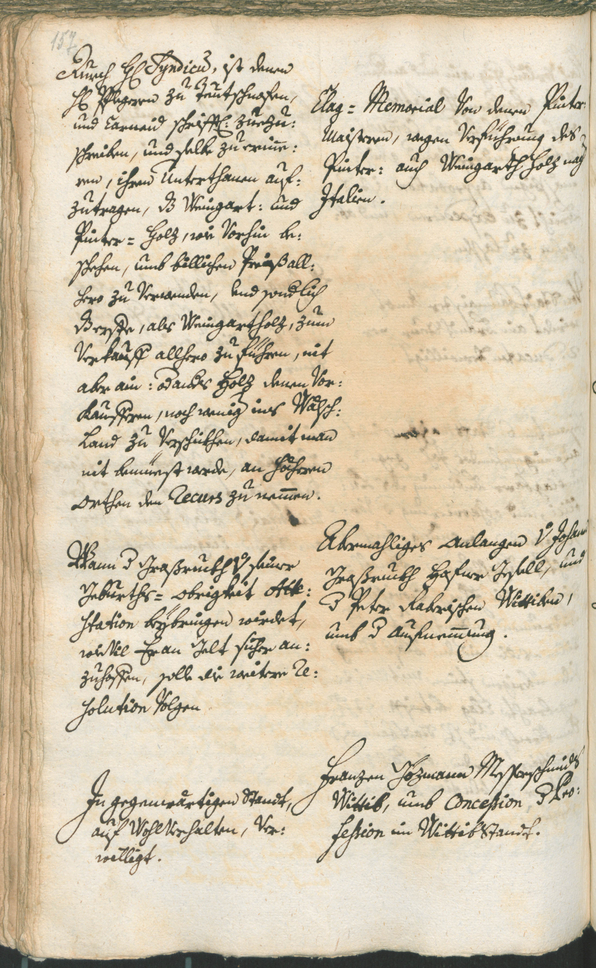 157
Durch H: Syndicus, ist denen
H: Pflegern zu Deutschnofen,
und Carneid schrifftl: zuezu:
schreiben, und selbe zu erinne:
ren, ihren Unterthanen auf:
zutragen, dß Weingart: und
Pinter= Holz, wie Vorhin be:
schehen, umb billichen Preiß all:
hero zu Verwenden, und sondlich
derste, als Weingartholz, zum
Verkauff allhero zu führen, nit
aber ain: od ands Holz denen Vor:
kauffern, noch wenig ins Wälsch:
Land zu Verschickhen, damit man
nit bemüest werde, an Höhern
Orthen den Recurs zu nemmen.
Klag= Memorial Von denen Pinter
Maistern, wegen Verführung des
Pinter: auch Weingarth Holz nach
Italien.
Wann d Graßruckh seiner
Geburths= Obrigkeit Atte:
station beybringen würdet,
wie Vil Er an Gelt sicher an:
zuhoffen, solle die weitere Re:
solution Volgen
Abermahliges Anlangen Johann
Graßruckh Hafner Gesell, und
d Peter Wittiben,
umb d Aufnemmung.
In gegenwärtigen Standt,
auf Wohlverhalten, Ver:
williget.
Franzen Messerschmids
Wittib, umb Concession d Pro:
fession im Wittibstandt.